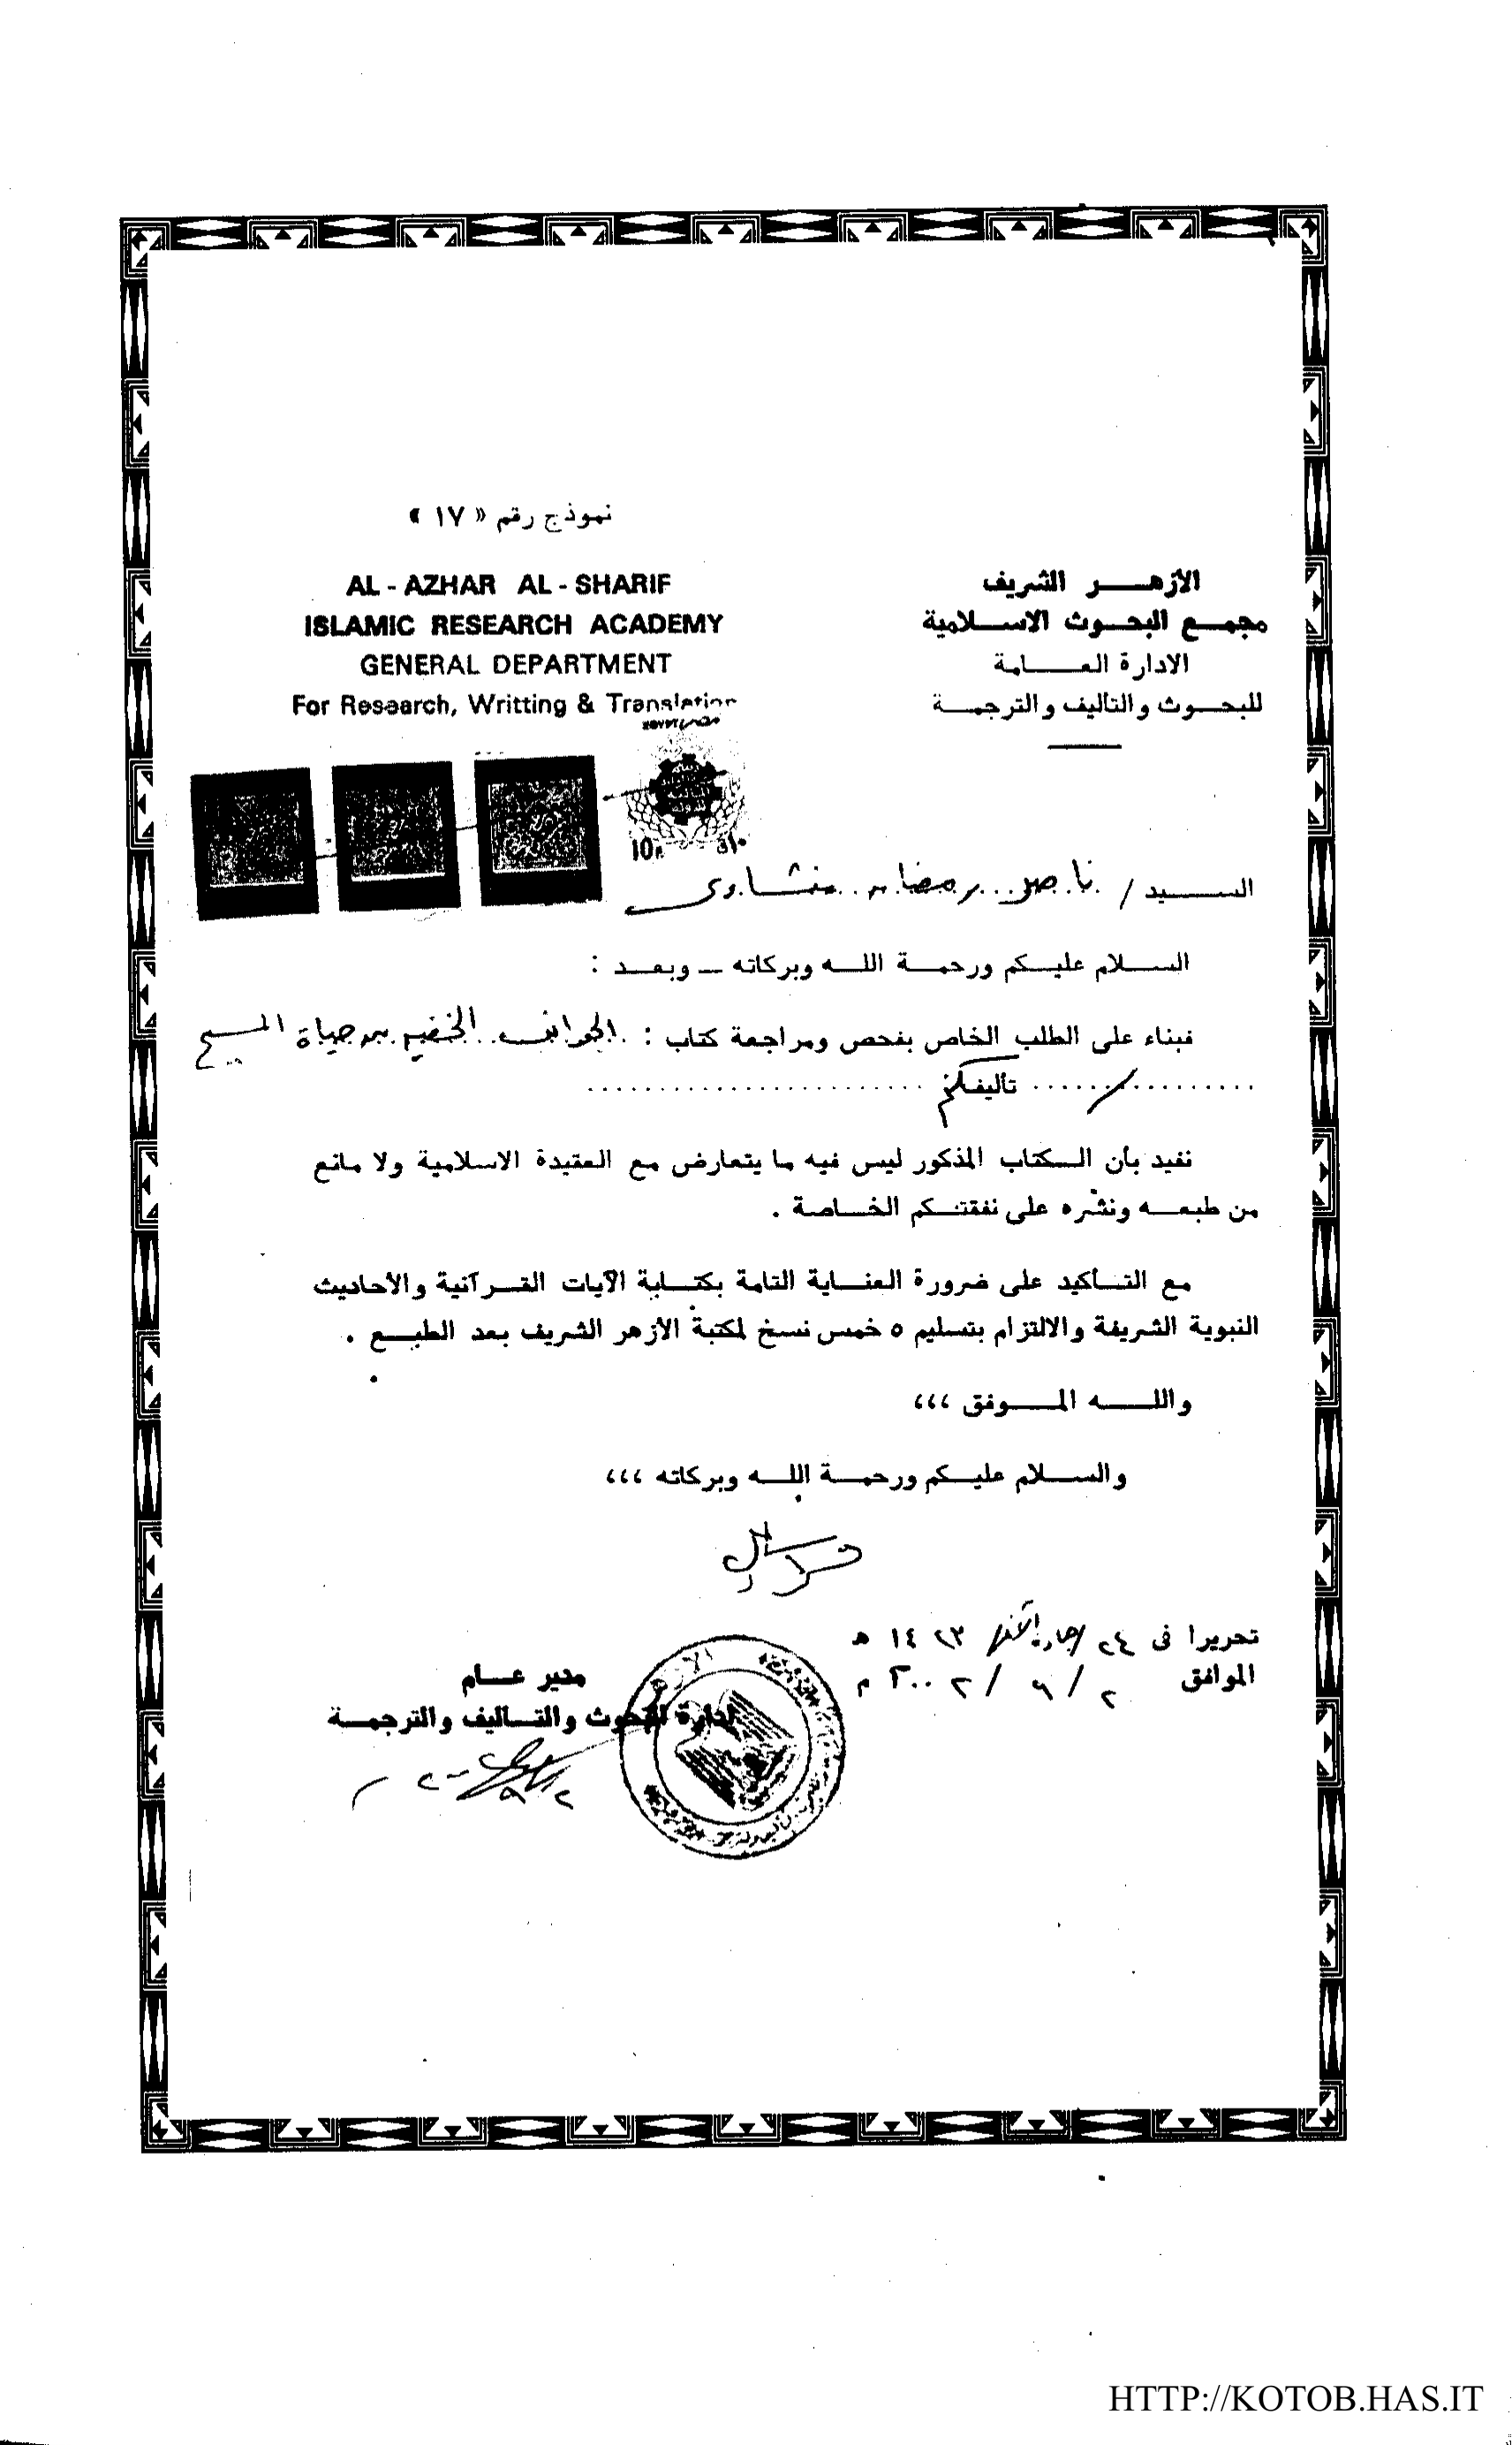 نموذج رقم « ١٧ »
الأزهــــر الشريف
مجمــع البحــوث الاســلامية
الادارة العــــامة
للبحــوث والتاليف والترجمــة
AL - AZHAR AL - SHARIF
ISLAMIC RESEARCH ACADEMY
GENERAL DEPARTMENT
For Research, Writting & Translation
الســـــيد / ناصر رمضان منشاوى
الســلام عليـكم ورحمــة اللــه وبركاته ــ وبعــد :
فبناء على الطلب الخاص بفحص ومراجعة كتاب : الجوانب الخفية من حياة المسيح
تأليفكم
نفيد بأن الـكتاب المذكور ليس فيه ما يتعارض مع العقيدة الاسلامية ولا مانع
من طبعــه ونشره على نفقتـكم الخــاصة .
مع التــأكيد على ضرورة العنــاية التامة بكتــابة الآيات القــرآنية والأحاديث
النبوية الشريفة والالتزام بتسليم ٥ خمس نسخ لمكتبة الأزهر الشريف بعد الطبــع .
واللــــه المــــوفق ،،،
والســـلام عليــكم ورحمــة اللــه وبركاته ،،،
تحريرا فى ٢٤ / جمادى الآخر / ١٤٢٣ هـ
الموافق ٢ / ٩ / ٢٠٠٢ م
مدير عــام
ادارة البحوث والتــاليف والترجمــة
HTTP://KOTOB.HAS.IT